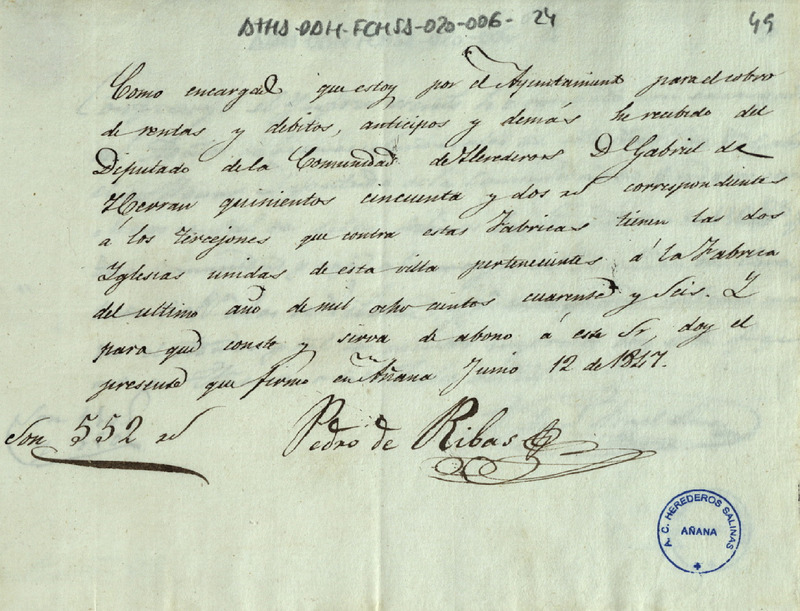 ATHA-DAH-FCHSS-020-006-24
49
Como encargado que estoy por el Ayuntamiento para el cobro
de rentas y débitos, anticipos y demás he recibido del
Diputado de la Comunidad de Herederos D Gabriel de
Herran quinientos cincuenta y dos rs correspondientes
á los tercejones que contra estas Fabricas tienen las dos
Yglesias unidas de esta villa pertenecientes á la Fabrica
del ultimo año de mil ocho cientos cuarenta y Seis. Y
para que conste y sirva de abono á este Sr, doy el
presente que firmo en Añana Junio 12 de 1847.
Son 552 rs
Pedro de Ribas
A. C. HEREDEROS SALINAS
AÑANA